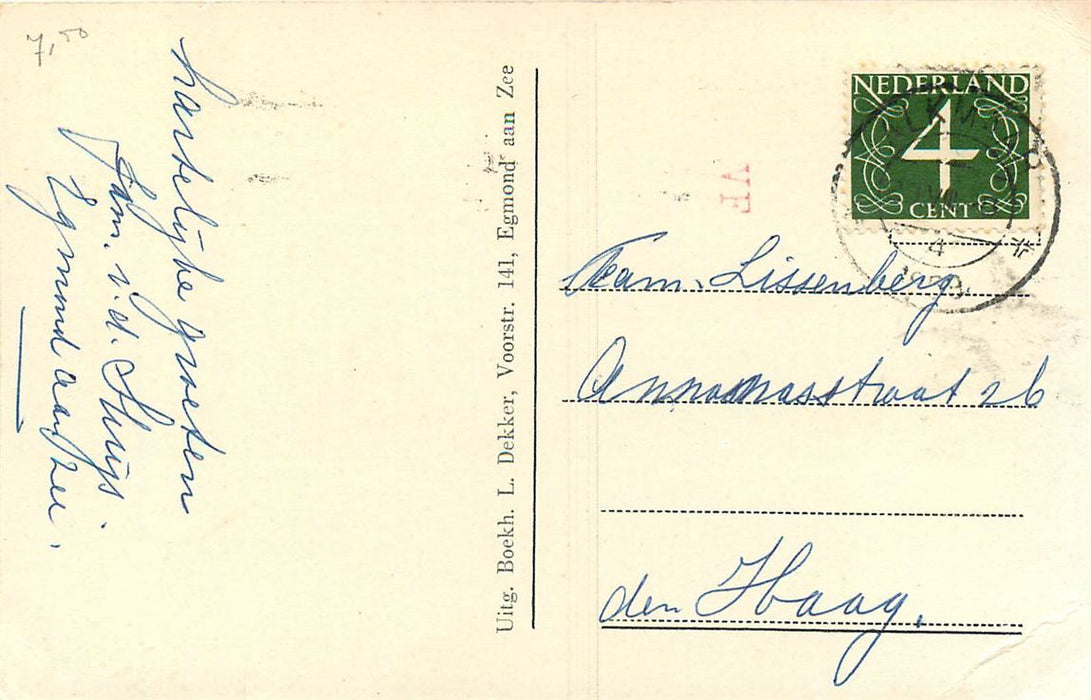 7,50
hartelijke groeten
fam. v.d. Sluijs.
Egmond aan Zee.
Uitg. Boekh. L. Dekker, Voorstr. 141, Egmond aan Zee
NEDERLAND
4
CENT
ALKMAAR
4
AF
Fam. Lissenberg
straat 26
den Haag.